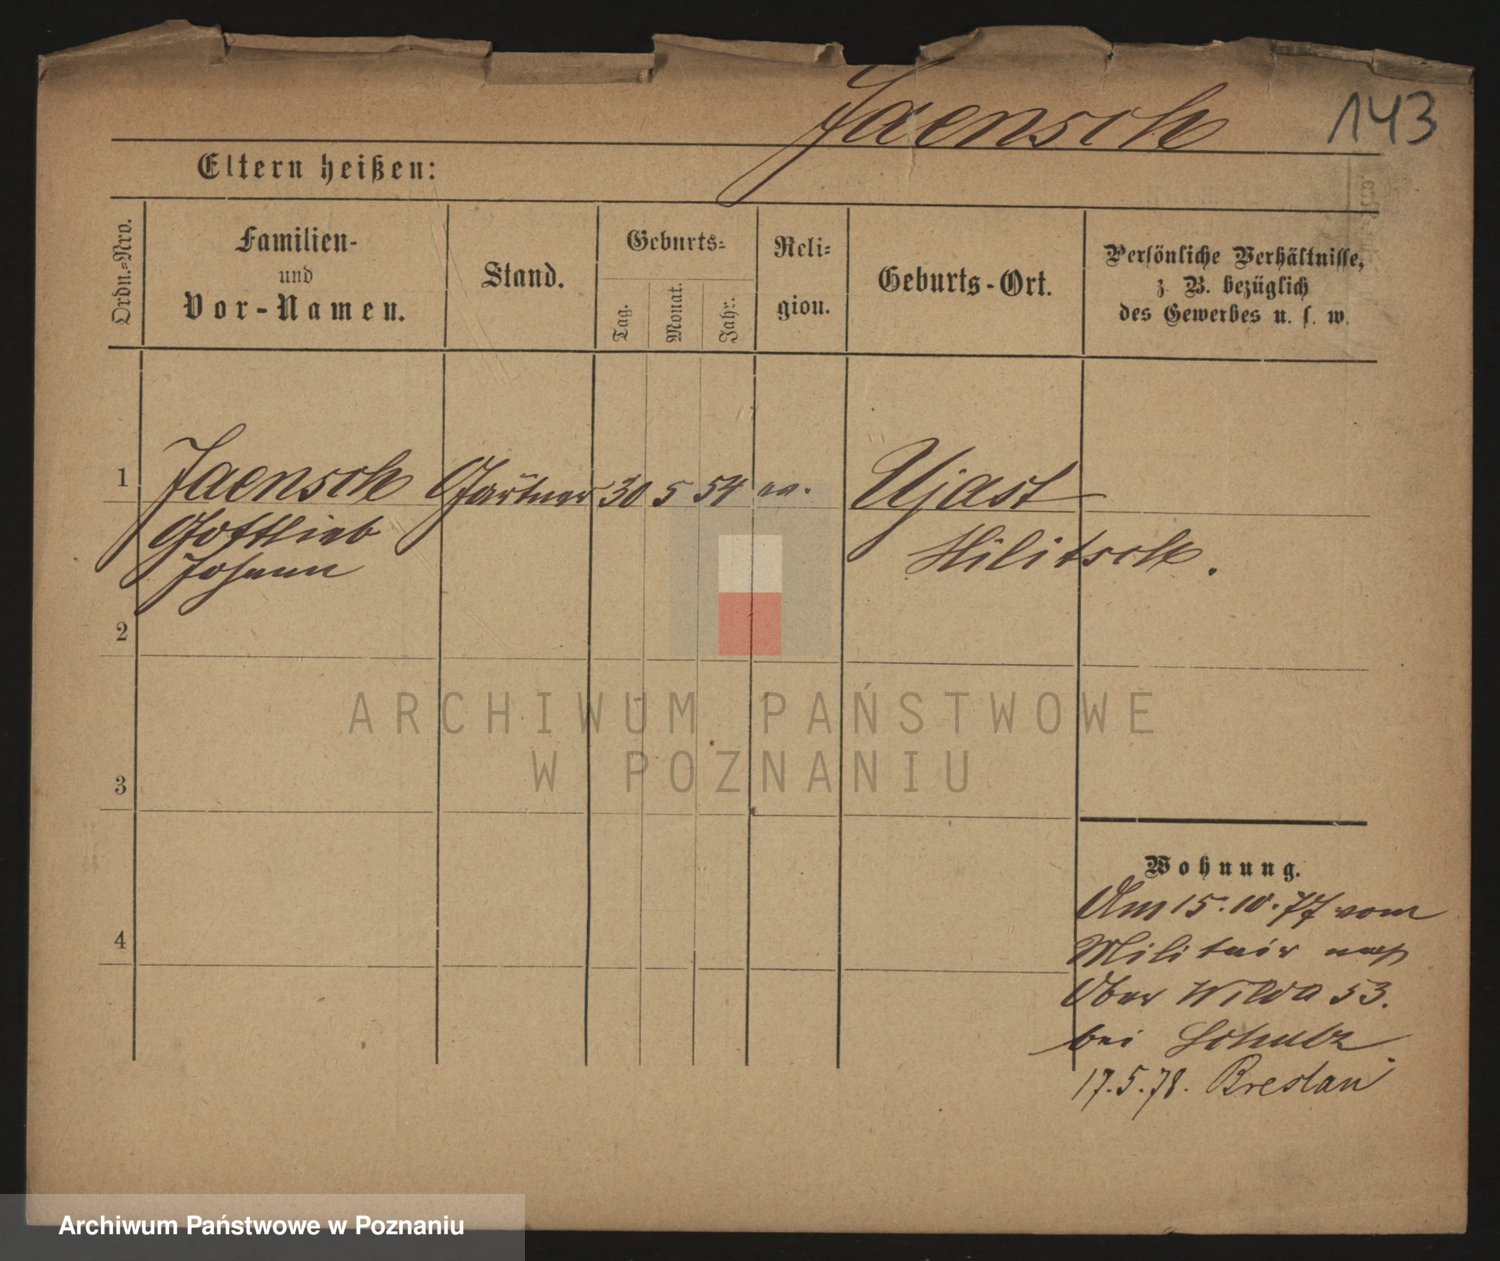 Jaensch
143
Eltern heißen:
Ordn.=Nro.
Familien-
und
Vor-Namen.
Stand.
Geburts=
Tag.
Monat.
Jahr.
Reli=
gion.
Geburts-Ort.
Persönliche Verhältnisse,
z. B. bezüglich
des Gewerbes u. s. w.
1 Jaensch Gärtner 30 5 54 ev. Ujast
Gottlieb
Johann
Militsch.
2
3
4
Wohnung.
Am 15.10.77 vom
Militair nach
Ober Wilda 53.
bei Schulz
17.5.78. Breslau
ARCHIWUM PAŃSTWOWE
W POZNANIU
Archiwum Państwowe w Poznaniu